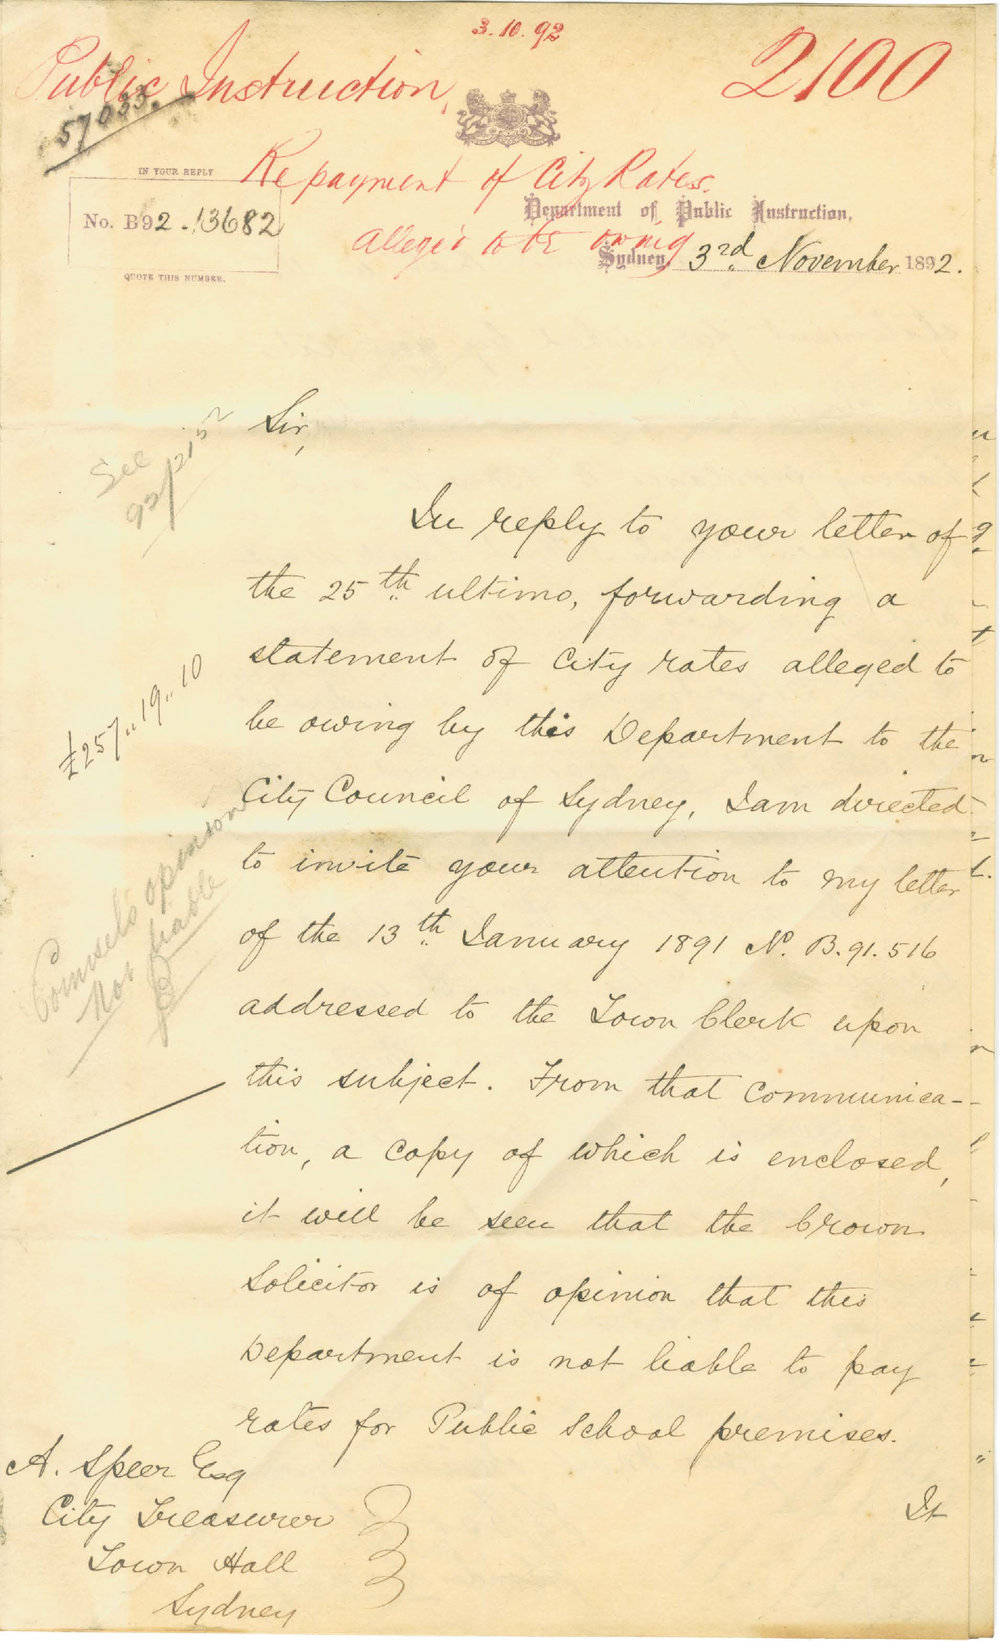 3.10.92
Public Instruction,
2100
57033.
Repayment of City Rates.
alleged to be owing
IN YOUR REPLY
No. B92.13682
QUOTE THIS NUMBER.
Department of Public Instruction,
Sydney 3rd November 1892.
See
92/2152
Sir,
In reply to your letter of
the 25th ultimo, forwarding a
statement of City rates alleged to
be owing by this Department to the
City Council of Sydney, I am directed
to invite your attention to my letter
of the 13th January 1891 No. B.91.516
addressed to the Town Clerk upon
this subject. From that communica-
tion, a copy of which is enclosed,
it will be seen that the Crown
Solicitor is of opinion that this
Department is not liable to pay
rates for Public School premises.
£257"19"10
Counsel's opinion
Not liable
A. Speer Esq
City Treasurer
Town Hall
Sydney
It